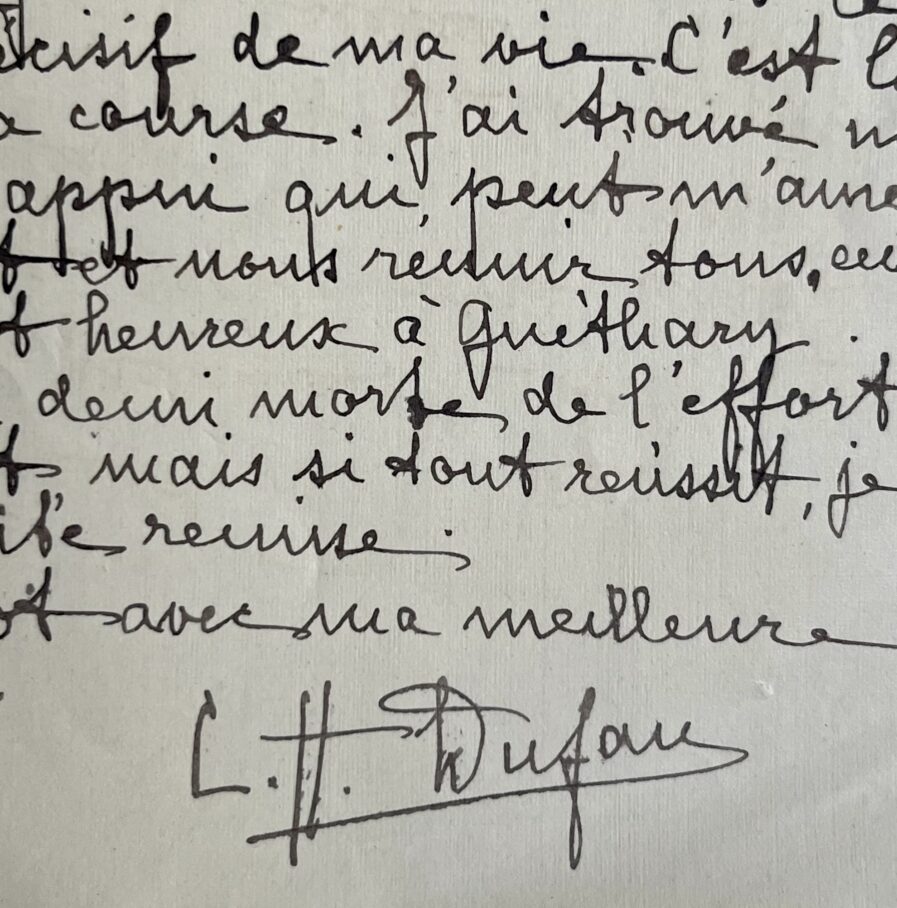 décisif de ma vie. C'est l
a course. J'ai trouvé
appui qui peut m'
et nous réunir tous,
heureux à Guéthary.
demi morte de l'effort
mais si tout réussit, je
remise.
avec ma meilleure
C.H. Dufau